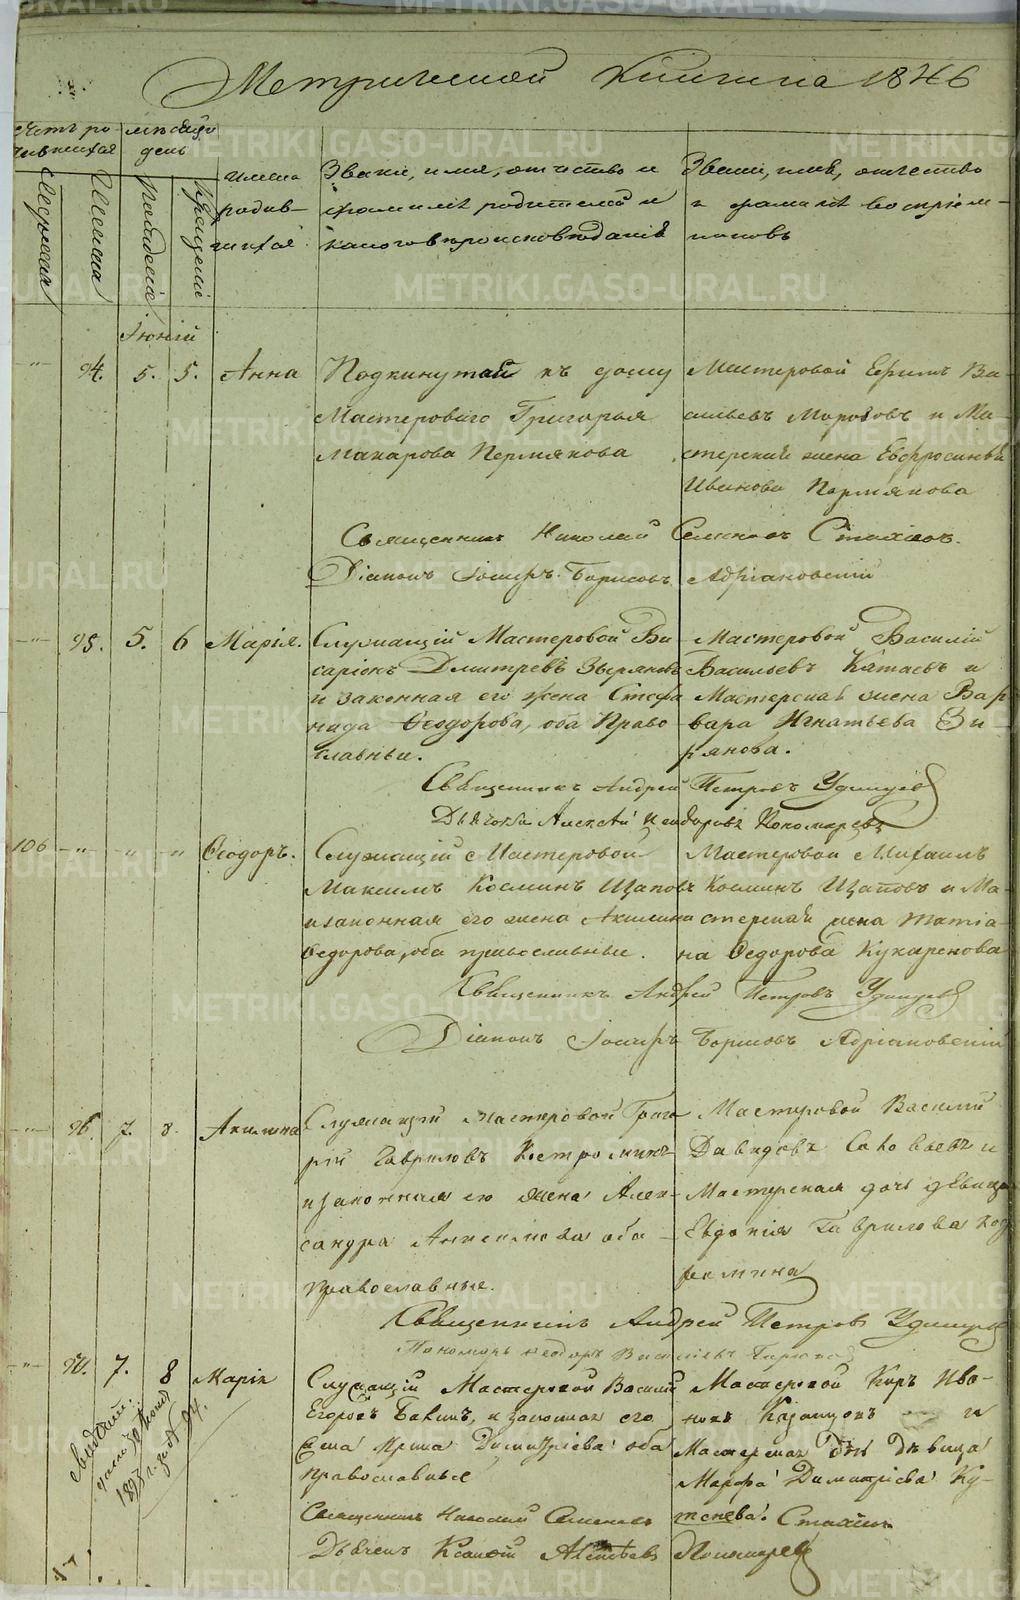 Метрической Книги на 1846
Счетъ ро-
дившихся
мѣсяцъ
день
Мужеска
Женска
Рожденія
Крещенія
имена
родив-
шихся
Званіе, имя, отчество и
фамилія родителей и
какого вѣроисповѣданія
Званіе, имя, отчество
и фамилія воспріем-
никовъ
Іюній
94. 5. 5. Анна
Подкинутая къ дому
Мастероваго Григорья
Макарова Пермякова
Мастеровой Ефимъ Ва-
сильевъ Морозовъ и Ма-
стерская жена Евфросинья
Иванова Пермякова
Священникъ Николай Семеновъ Стахіевъ.
Діаконъ Іосифъ Борисовъ Адріановскій
95. 5. 6 Марія.
Служащій Мастеровой Ви-
саріонъ Дмитревъ Зыряновъ
и законная его жена Стефа
нида Ѳеодорова, оба Право
славные.
Мастеровой Василій
Васильевъ Катаевъ и
Мастерская жена Вар
вара Игнатьева Зы
рянова.
Священникъ Андрей Петровъ Удинцев
Дьячокъ Алексѣй Пономаревъ
106 Ѳеодоръ.
Служащій Мастеровой
Максимъ Космин Щаповъ
и законная его жена Акилина
Ѳедорова, оба православные.
Мастеровой Михаилъ
Косминъ Щаповъ и Ма-
стерская жена Татіа-
на Ѳедорова Кукаренова
Священникъ Андрей Петровъ Удинцев
Діаконъ Іосифъ Борисовъ Адріановскій
96. 7. 8. Акилина
Служащій мастеровой Григо
рій Гавриловъ Костроминъ
и законная его жена Алек-
сандра оба
православные.
Мастеровой Василій
Давидовъ и
Мастерская дочь девица
Евдокія Гаврилова Кос
Священникъ Андрей Петровъ Удинцев
Пономарь Васильевъ
97. 7. 8 Марія
Служащій Мастеровой Василій
Егоровъ и законная его
жена Ирина Димитріева оба
православные
Мастеровой Киръ Ива-
новъ Казанцовъ и
Мастерская дѣвица
Марфа Димитріева Ку-
Священникъ Николай Семеновъ Стахіевъ
Дьячекъ Алексѣевъ Пономаревъ
METRIKI.GASO-URAL.RU